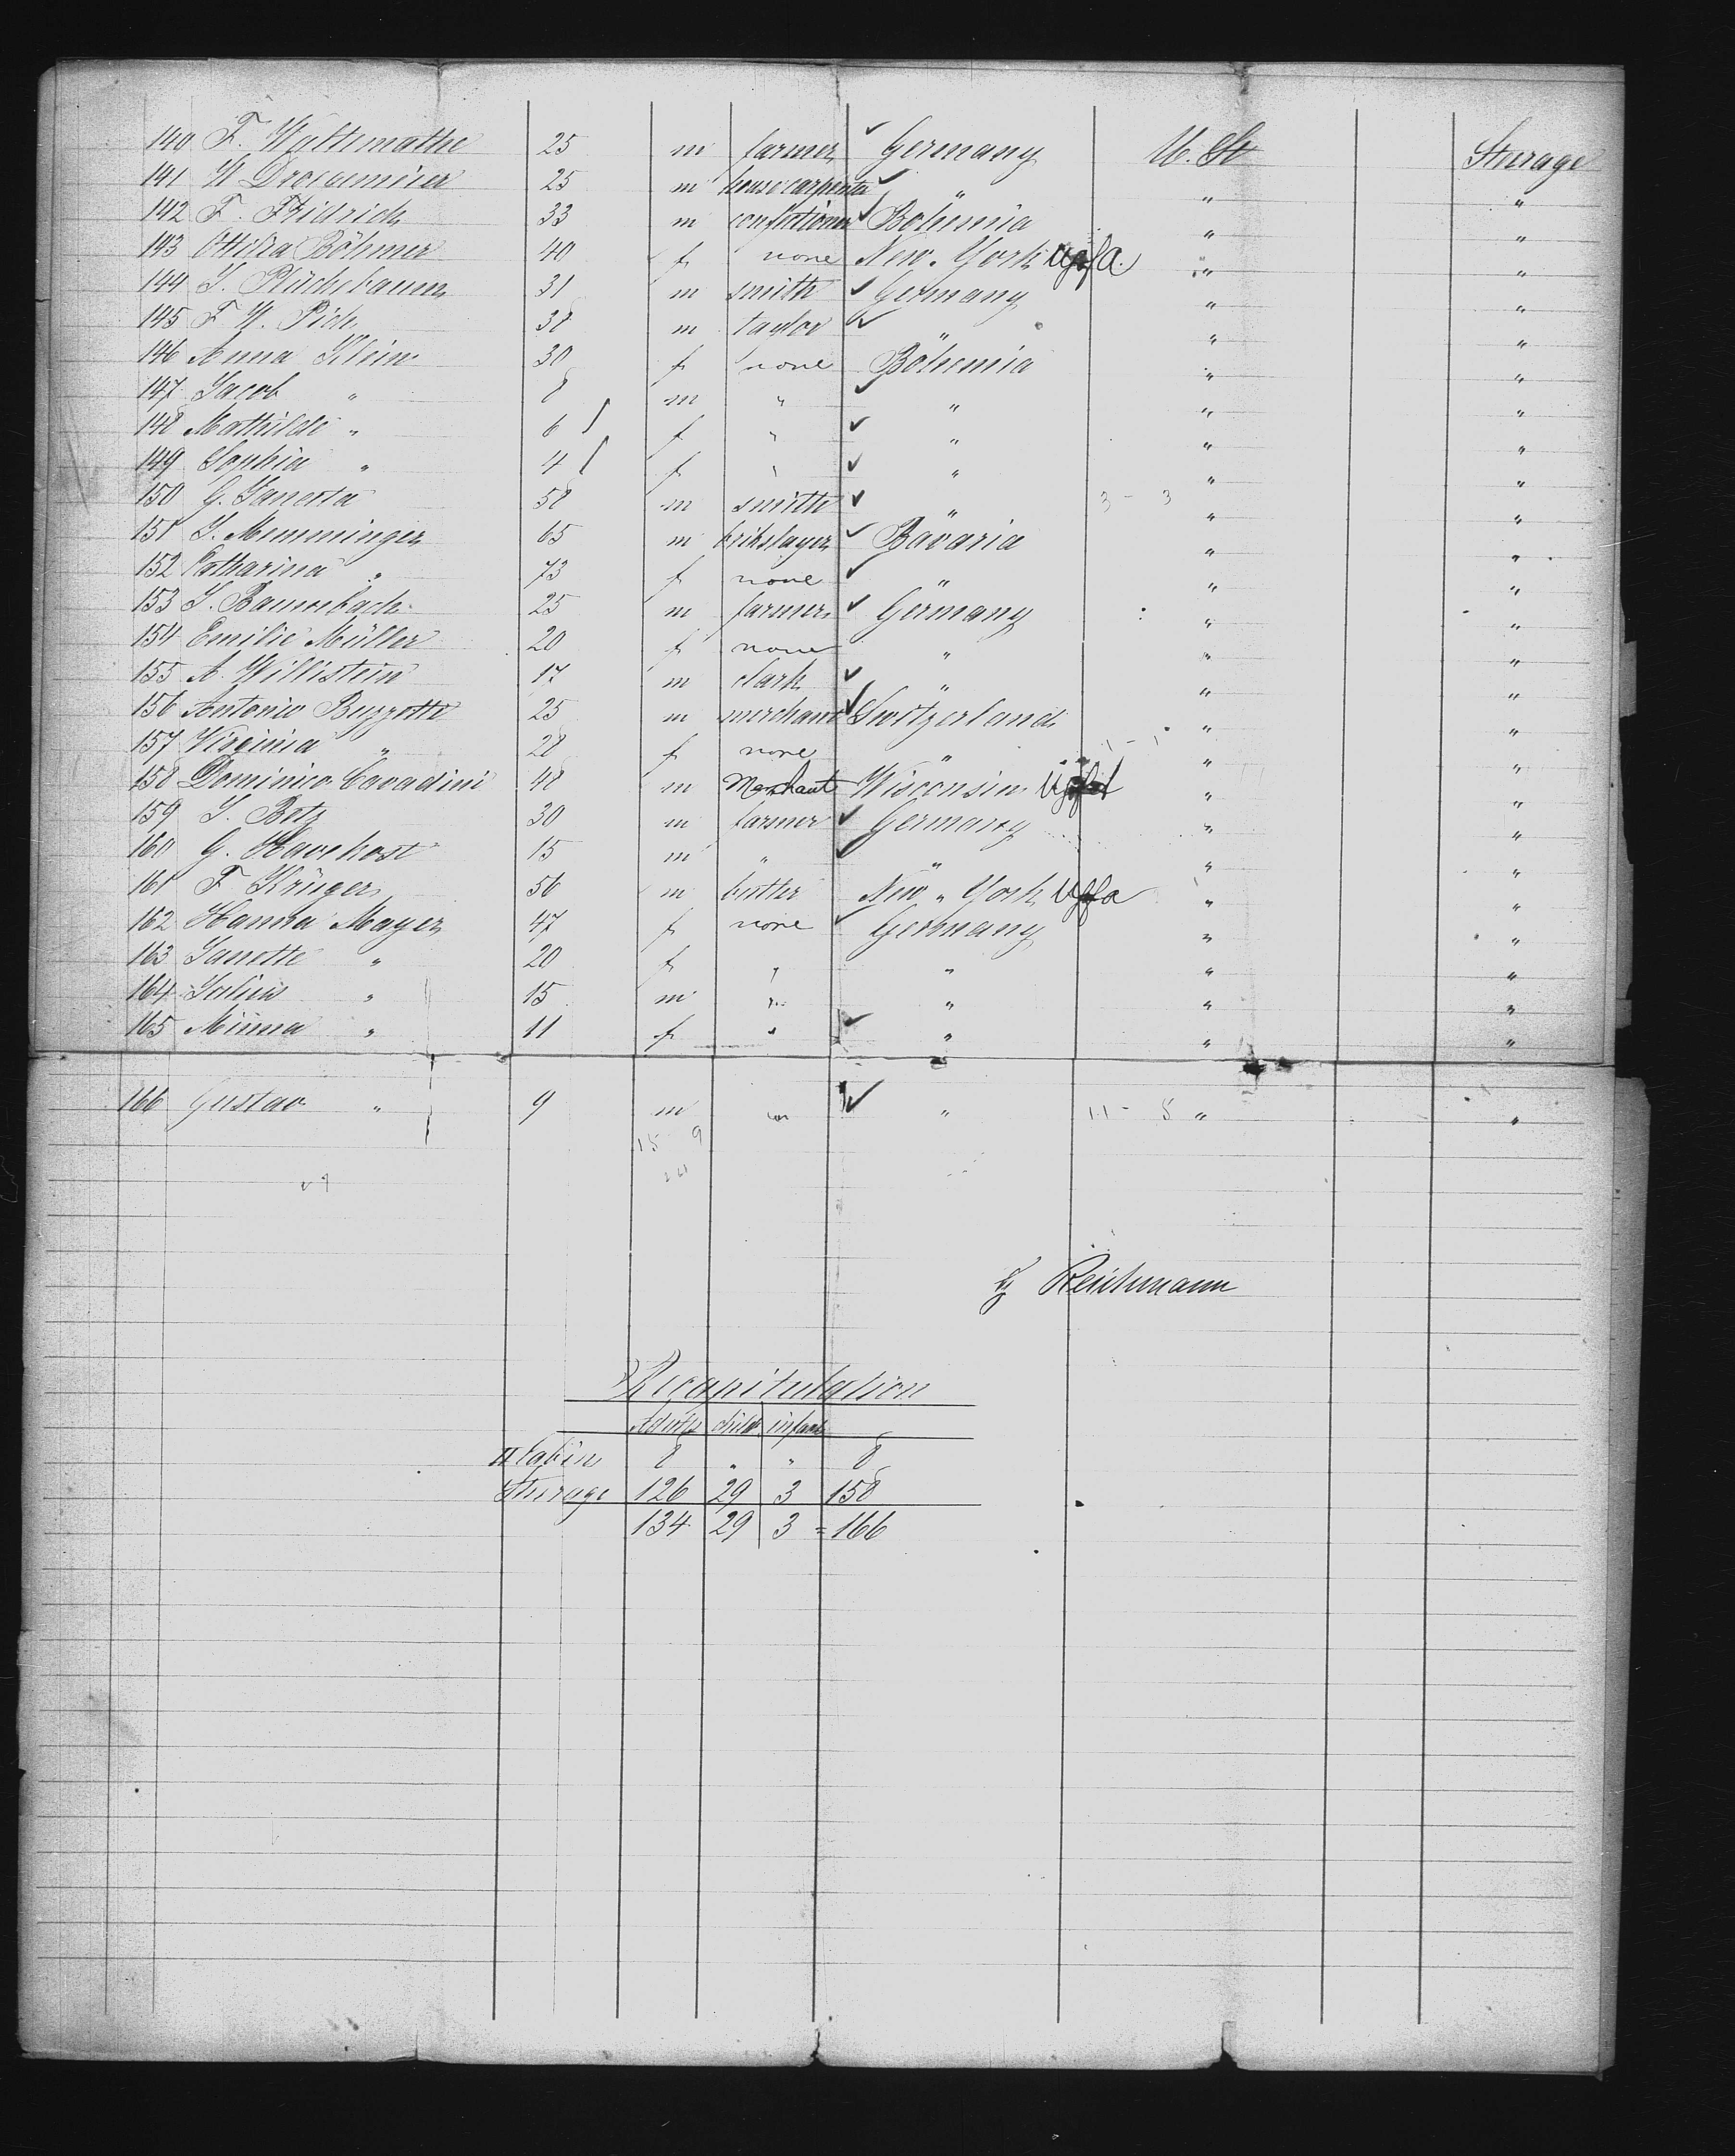 140 F. Waltemathe 25 m farmer ✓ Germany U. St Sturage
141 W Droegemeier 25 m house carpenter ✓ " " "
142 F. Fridrich 33 m confectioner ✓ Bohemia " "
143 Ottilia Böhmer 40 f none New York " "
144 J. Plückebaum 31 m smith ✓ Germany " "
145 F W. Pich 38 m taylor ✓ " " "
146 Anna Klein 30 f none Böhemia " "
147 Jacob " 8 m " ✓ " " "
148 Mathilde " 6 f " ✓ " " "
149 Sophia " 4 f " ✓ " " "
150 G. 58 m smith ✓ " 3 - 3 " "
151 J. Memminger 65 m brikslayer ✓ Bavaria " "
152 Catharina " 73 f none ✓ " " "
153 J. Baumbach 25 m farmer ✓ Germany " "
154 Emilie Müller 20 f none " " "
155 A. Willistein 17 m clark ✓ " " "
156 Antonio Buzzotti 25 m merchant ✓ Switzerland " "
157 Virginia " 28 f none " 1 - 1 " "
158 Dominico Cavadini 48 m Merchant Wisconsin " "
159 J. Botz 30 m farmer ✓ Germany " "
160 G. Havekost 15 m " ✓ " " "
161 F Krüger 56 m New York " "
162 Hanna Mayer 47 f none ✓ Germany " "
163 Janette " 20 f " " " "
164 Julius " 15 m " " " "
165 Minna " 11 f " ✓ " " "
166 Gustav " 9 m " ✓ " 11 - 5 " "
15 9
24
Reichmann
Recapitulation
Adults childr infants
II Cabin 8 " " 8
Sturage 126 29 3 158
134 29 3 = 166